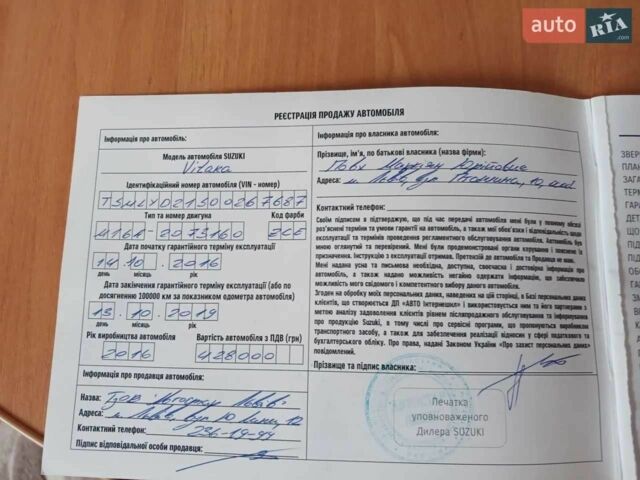 auto RIA.com
РЕЄСТРАЦІЯ ПРОДАЖУ АВТОМОБІЛЯ
Інформація про автомобіль:
Модель автомобіля SUZUKI
Vitara
Ідентифікаційний номер автомобіля (VIN - номер)
TSMLYD21S00267687
Тип та номер двигуна Код фарби
M16A-2073160 ZCE
Дата початку гарантійного терміну експлуатації
14.10.2016
день місяць рік
Дата закінчення гарантійного терміну експлуатації (або по
досягненню 100000 км за показником одометра автомобіля)
13.10.2019
день місяць рік
Рік виробництва автомобіля Вартість автомобіля з ПДВ (грн)
2016 428000
Інформація про продавця автомобіля:
Назва:
Адреса: м
Контактний телефон: 236-19-99
Підпис відповідальної особи продавця:
Інформація про власника автомобіля:
Прізвище, ім'я, по батькові власника (назва фірми):
Адреса: м
Контактний телефон:
Своїм підписом я підтверджую, що під час передачі автомобіля мені були у повному обсязі
роз'яснені терміни та умови гарантії на автомобіль, а також мої обов'язки і відповідальність щодо
експлуатації та термінів проведення регламентного обслуговування автомобіля. Автомобіль був
мною оглянутий та перевірений. Мені були продемонстровані органи керування і пояснені їх
призначення. Інструкцію з експлуатації отримав. Претензій до автомобіля та Продавця не маю.
Мені надана усна та письмова необхідна, доступна, своєчасна і достовірна інформація про
автомобіль, а також надано можливість негайно одержати інформацію, що забезпечує
можливість мого свідомого і компетентного вибору даного автомобіля.
Згоден на обробку моїх персональних даних, наведених на цій сторінці, в Базі персональних даних
клієнтів, що створюється ДП «АВТО Інтернешнл» і використовується ним та його партнерами з
метою аналізу задоволення клієнтів рівнем післяпродажного обслуговування та інформування
про продукцію Suzuki, в тому числі про сервісні програми, що пропонуються виробником
транспортного засобу, а також для забезпечення реалізації відносин у сфері податкового та
бухгалтерського обліку. Про права, надані Законом України «Про захист персональних даних»
повідомлений.
Прізвище та підпис власника:
Печатка
уповноваженого
Дилера SUZUKI